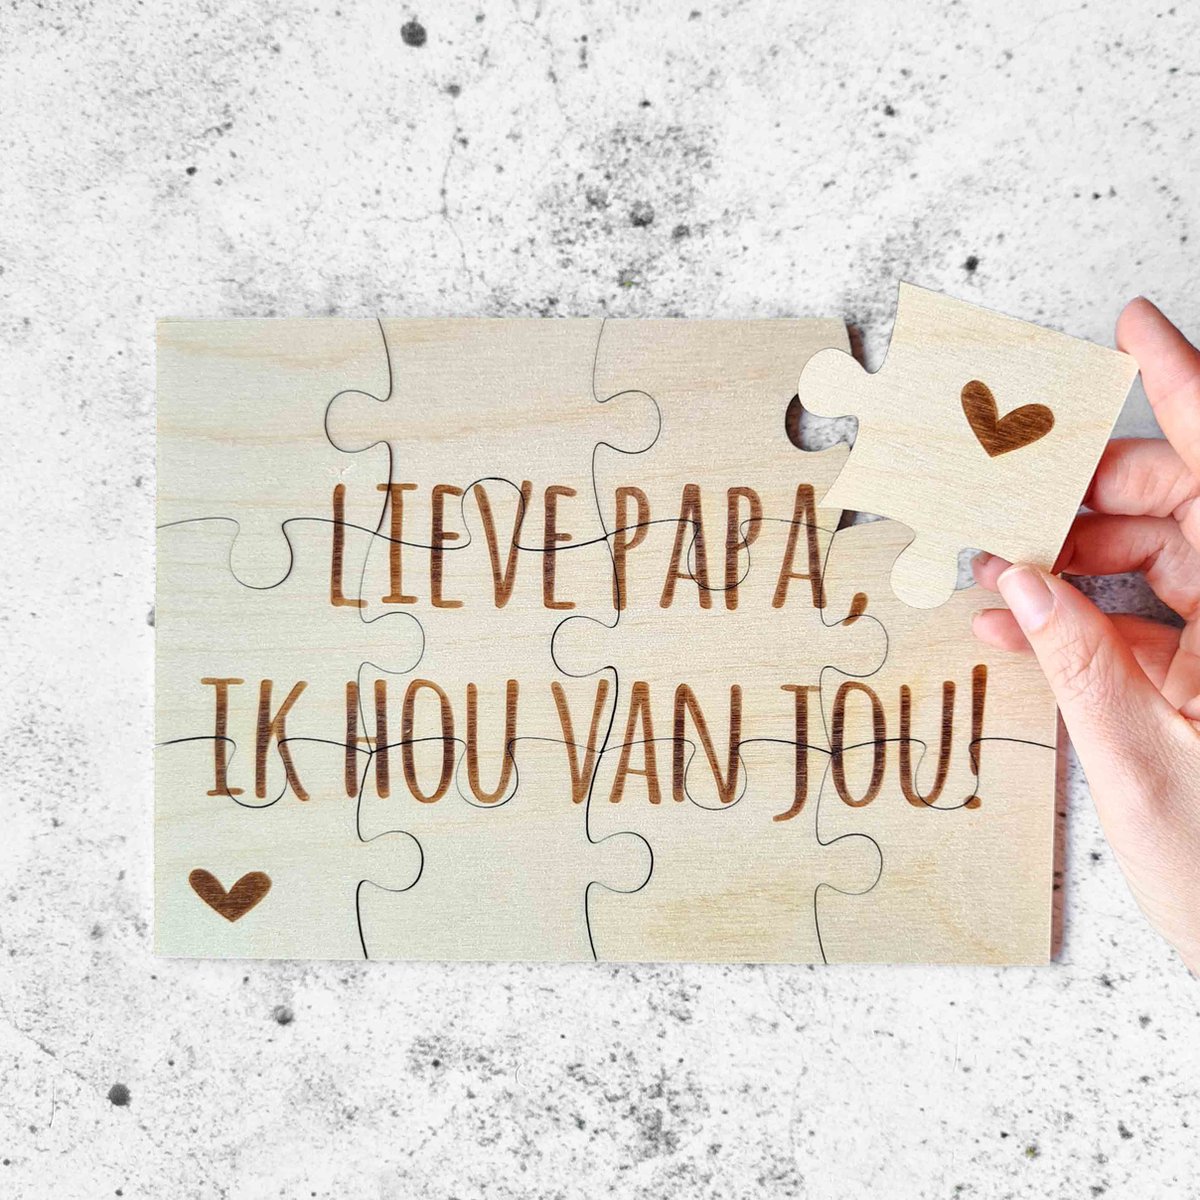 LIEVE PAPA,
IK HOU VAN JOU!